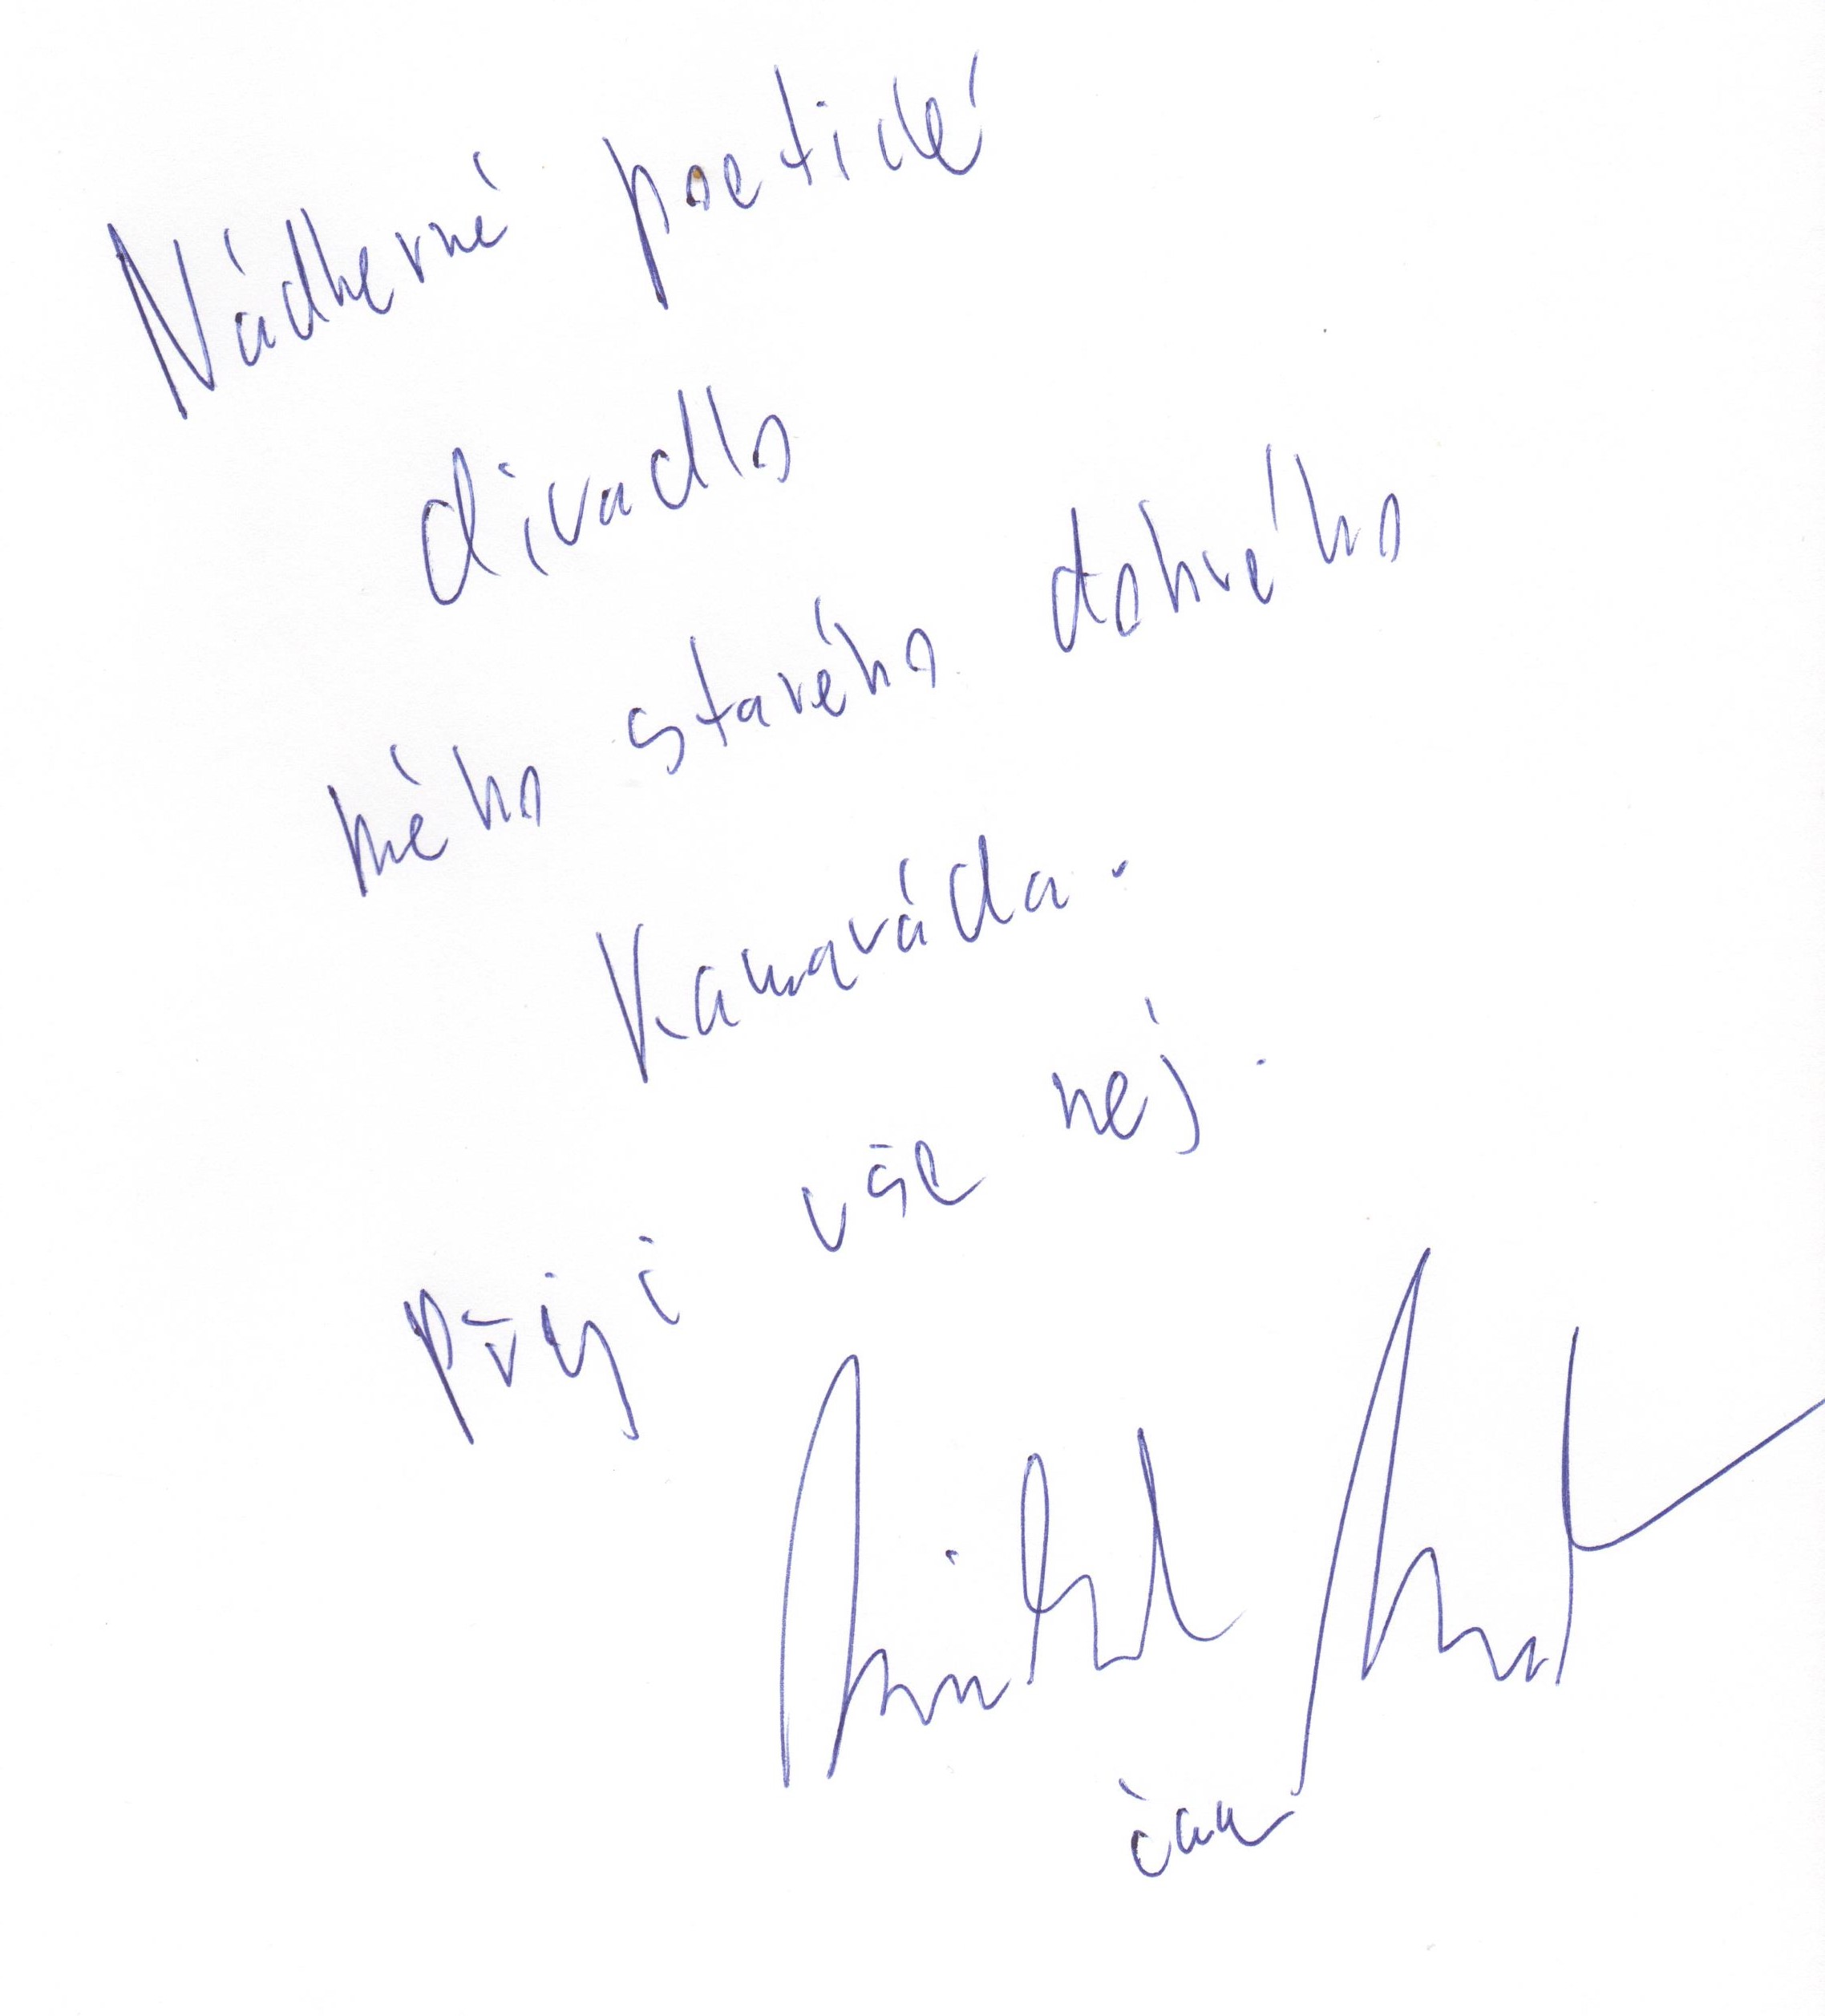 Nádherné poetické
divadlo
mého starého dobrého
Kamaráda.
Přeji vše nej.
čau